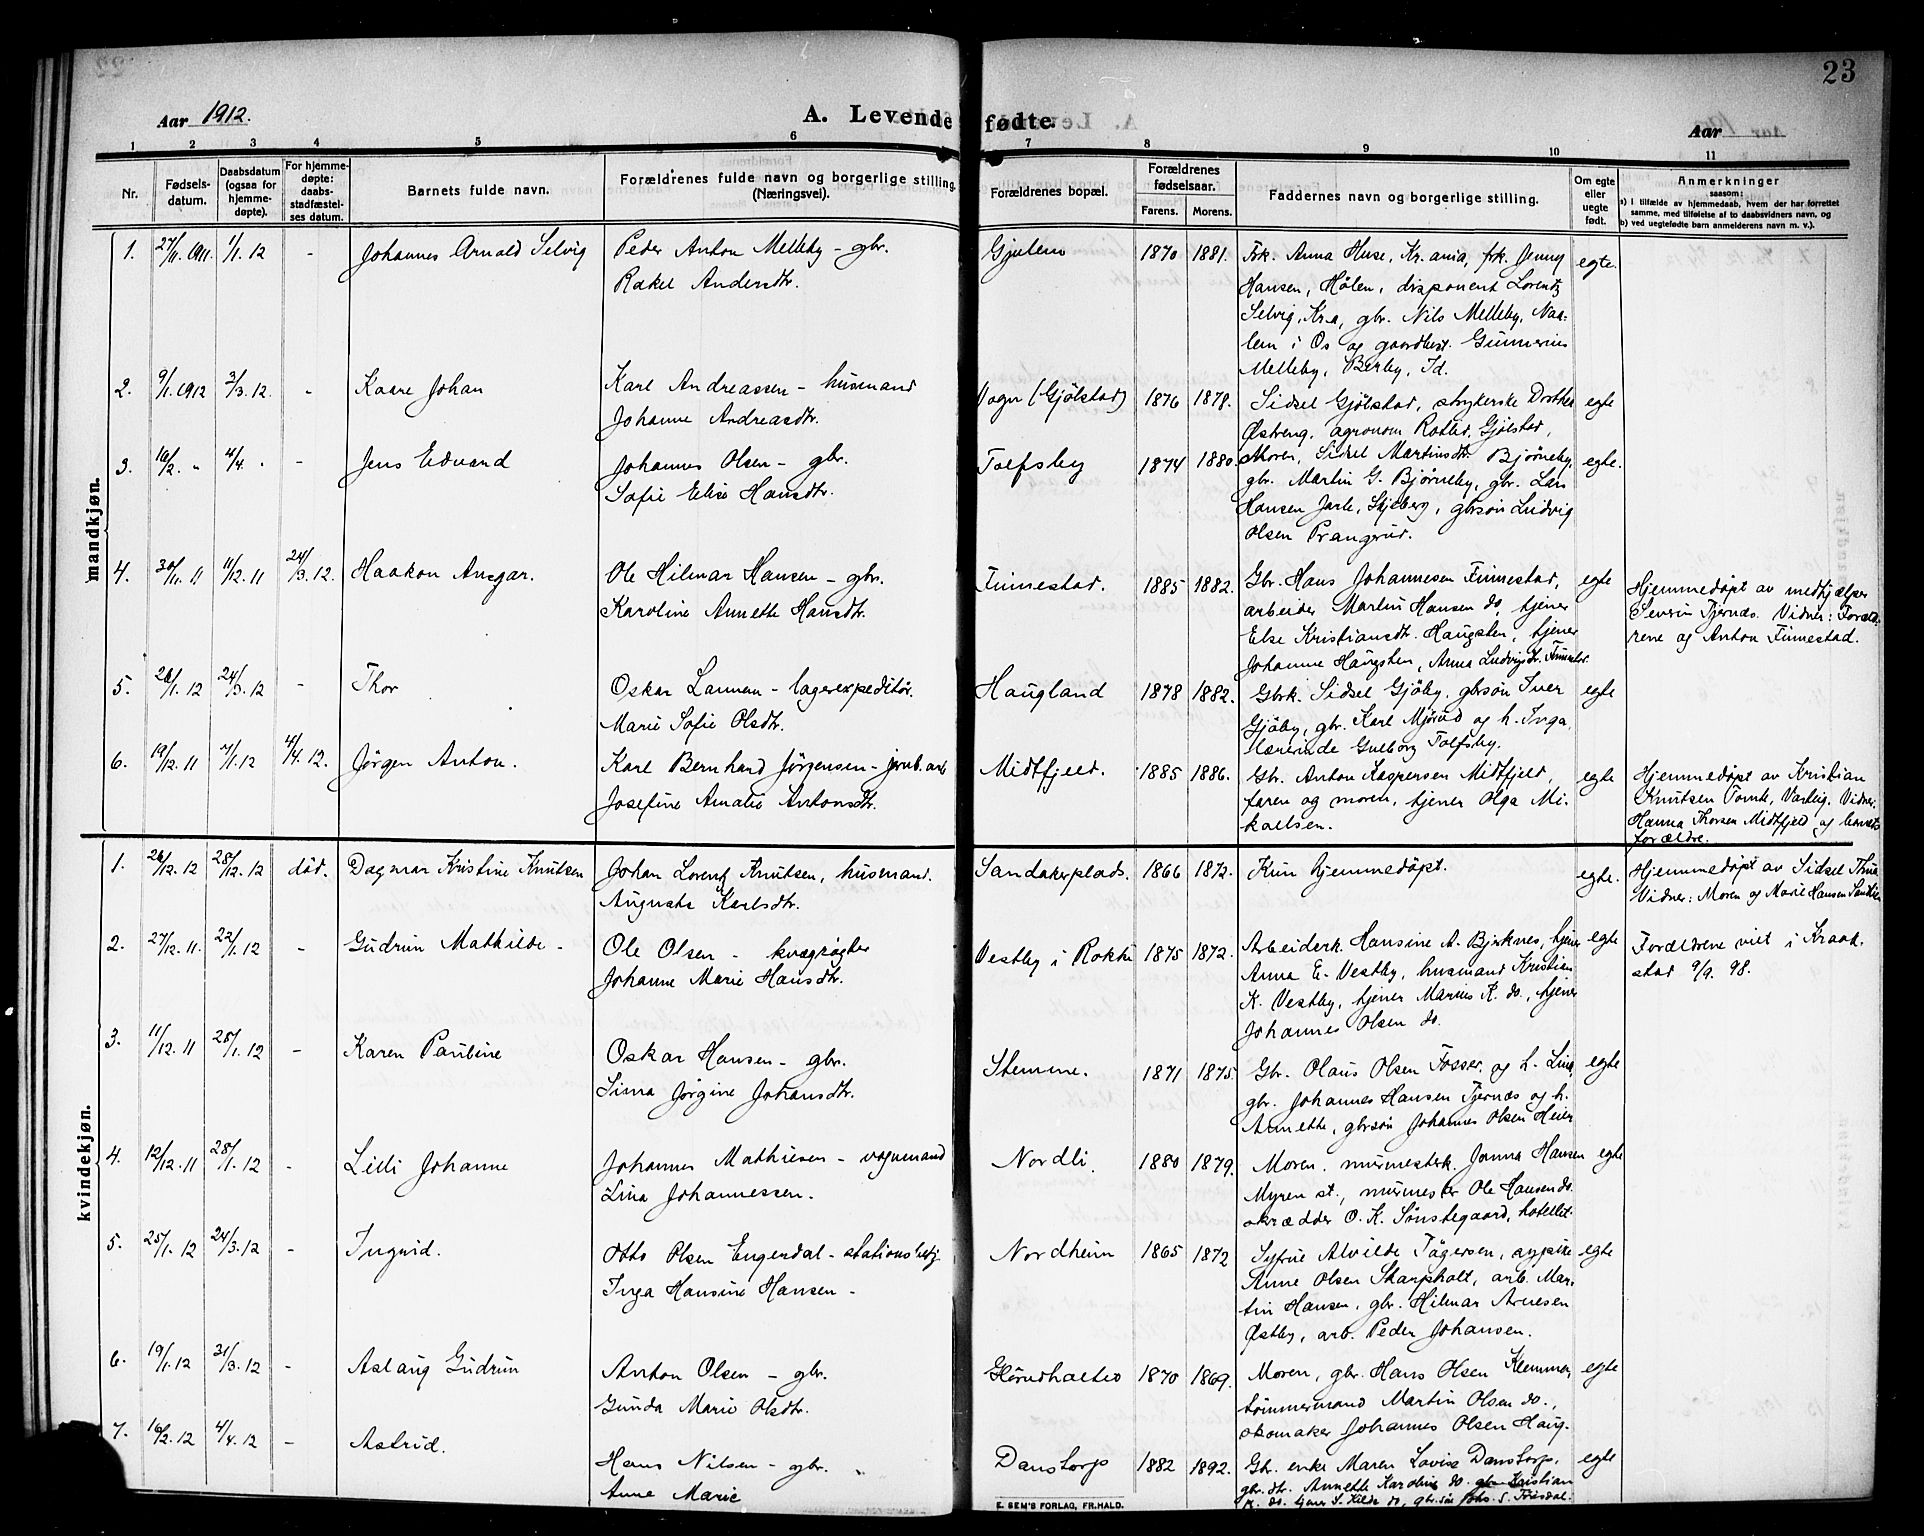 23
Aar 1912.
A. Levende fødte.
Aar
1 2 3 4 5 6 7 8 9 10 11
Nr.
Fødsels-
datum.
Daabsdatum
(ogsaa for
hjemme-
døpte).
For hjemme-
døpte:
daabs-
stadfæstel-
ses datum.
Barnets fulde navn.
Forældrenes fulde navn og borgerlige stilling.
(Næringsvei).
Forældrenes bopæl.
Forældrenes
fødselsaar.
Farens. Morens.
Faddernes navn og borgerlige stilling.
Om egte
eller
uegte
født.
Anmerkninger
saasom:
a) i tilfælde av hjemmedaab, hvem der har forrettet
samme, med tilføielse af to daabsvidners navn, og
b) ved uegtefødte barn anmelderens navn m. v.).
mandkjøn.
1. 27/11. 1911. 1/1. 12 - Johannes Arnold Selvig
Peder Anton Melleby - gbr.
Rakel Andersdtr.
Gjulem 1870 1881.
Frk. Anna Huse, Kr.ania, frk. Jenny
Hansen, Hølen, disponent Lorentz
Selvig, Kra, gbr. Nils Melleby, Naa-
lem i Os og gaardbest. Gunnerius
Melleby, Berby, Id.
egte.
2. 9/1. 1912 3/3. 12. - Kaare Johan
Karl Andreassen - husmand
Johanne Andreasdtr.
Vogn (Gjølstad) 1876 1878.
Sidsel Gjølstad, strykerske Dorthea
Østreng, agronom Gjølstad,
egte
3. 10/2. " 4/4. " - Jens Edvard
Johannes Olsen - gbr.
Sofie Elise Hansdtr.
Tolfsby 1874 1880
Moren, Sidsel Martinsdtr. Bjørneby,
gbr. Martin G. Bjørneby, gbr. Lars
Hansen Jarle, Skjeberg, gbrsøn Ludvig
Olsen Prangerud.
egte.
4. 30/11. 11 11/12. 11 24/3. 12. Haakon Ansgar.
Ole Hilmar Hansen - gbr.
Karoline Annette Hansdtr.
Finnestad. 1885 1882.
Gbr. Hans Johannesen Finnestad,
arbeider Martin Hansen do, tjener
Else Kristiansdtr. Haugsten, tjener
Johanne Haugsten, Anna Ludvigsdtr. Finnestad.
egte
Hjemmedøpt av medhjælper
Severin Tjernæs. Vidner: Foræld-
rene og Anton Finnestad.
5. 26/1. 12 24/3. 12 - Thor
Oskar Lannem - lagerexpeditør.
Marie Sofie Olsdtr.
Haugland 1878 1882.
Gbrk. Sidsel Gjøby, gbrsøn Iver
Gjøby, gbr. Karl Mjørud og h. Inga,
lærerinde Gulborg Tolfsby.
egte
6. 19/12. 11 7/1. 12 4/4. 12. Jørgen Anton.
Karl Bernhard Jørgensen - jernb.arb
Josefine Amalie Antonsdtr.
Midtfjeld. 1885 1886.
Gbr. Anton Kaspersen Midtfjeld,
faren og moren, tjener Olga Mi-
kaelsen.
egte
Hjemmedøpt av Kristian
Knutsen Tomte, Varteig. Vidner:
Hanna Thorsen Midtfjeld og barnets
forældre.
kvindekjøn.
1. 26/12. 12 28/12. 12 død. Dagmar Kristine Knutsen
Johan Lorentz Knutsen, husmand.
Augusta Karlsdtr.
Sandakerplads. 1866 1872.
Kun hjemmedøpt.
egte.
Hjemmedøpt av Sidsel
Vidner: Moren og Marie Hansen
2. 27/12. 11. 22/1. 12 - Gudrun Mathilde -
Ole Olsen - kvægrøgter
Johanne Marie Hansdtr.
Vestby i Rokke 1875 1872.
Arbeiderk. Hansine A. Bjerknes, tjener
Anna E. Vestby, husmand Kristian
K. Vestby, tjener Marius K. do, tjener
Johannes Olsen do.
egte
Forældrene viet i Kraak-
stad 9/9. 98.
3. 11/12. 11 28/1. 12 - Karen Pauline
Oskar Hansen - gbr.
Sina Jørgine Johansdtr.
Stemme. 1871 1875.
Gbr. Olaus Olsen Fosser, og h. Lina,
gbr. Johannes Hansen Tjernæs og h.
Annette, gbrsøn Johannes Olsen Heier
egte
4. 12/12. 11 28/1. 12 - Lilli Johanne
Johannes Mathiesen - vognmand
Lina Johannessen.
Nordli. 1880 1879.
Moren, murmesterk. Jonna Hansen
Myren st., murmester Ole Hansen do.
skrædder O. K. Sønstegaard, hotellet
egte
5. 25/1. 12 24/3. 12 - Ingrid.
Otto Olsen Engerdal - stationsbetj.
Inga Hansine Hansen -
Nordheim 1865 1872
Syfrue Alvilde Tøgersen, sypike
Anne Olsen Skarpholt, arb. Mar-
tin Hansen, gbr. Hilmar Arnesen
Østby, arb. Peder Johansen.
egte
6. 19/1. 12 31/3. 12 - Aslaug Gudrun
Anton Olsen - gbr.
Gunda Marie Olsdtr.
1870 1869.
Moren, gbr. Hans Olsen Klemmer,
tømmermand Martin Olsen do.,
skomaker Johannes Olsen Haug.
egte
7. 16/2. 12 4/4. 12 - Astrid.
Hans Nilsen - gbr.
Anne Marie
Danstorp 1882 1892.
Gbr. enke Maren Lovise Danstorp,
gbr. dtr. Annette Karoline do. gbr. Kristian
do. tjener S. Kilde do, gbr. søn Johs. S. Tøisdal.
egte
E. SEM'S FORLAG, FR.HALD.